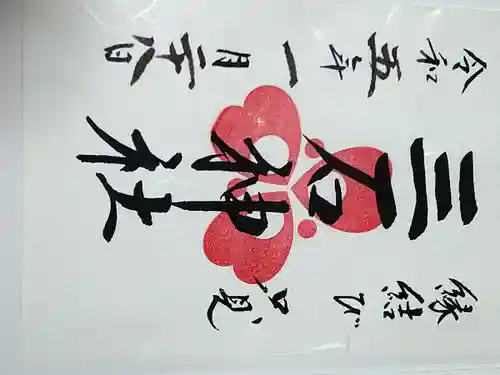 縁結び 只見
三石神社
令和五年一月二十八日